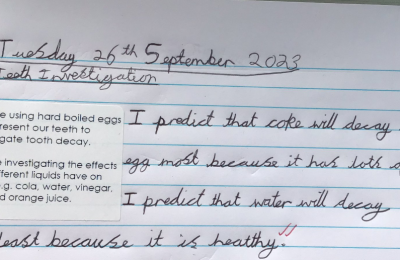 Tuesday 26th September 2023
Teeth Investigation
e using hard boiled eggs
resent our teeth to
gate tooth decay.
e investigating the effects
fferent liquids have on
.g. cola, water, vinegar,
d orange juice.
I predict that coke will decay
egg most because it has lots o
I predict that water will decay
least because it is healthy.